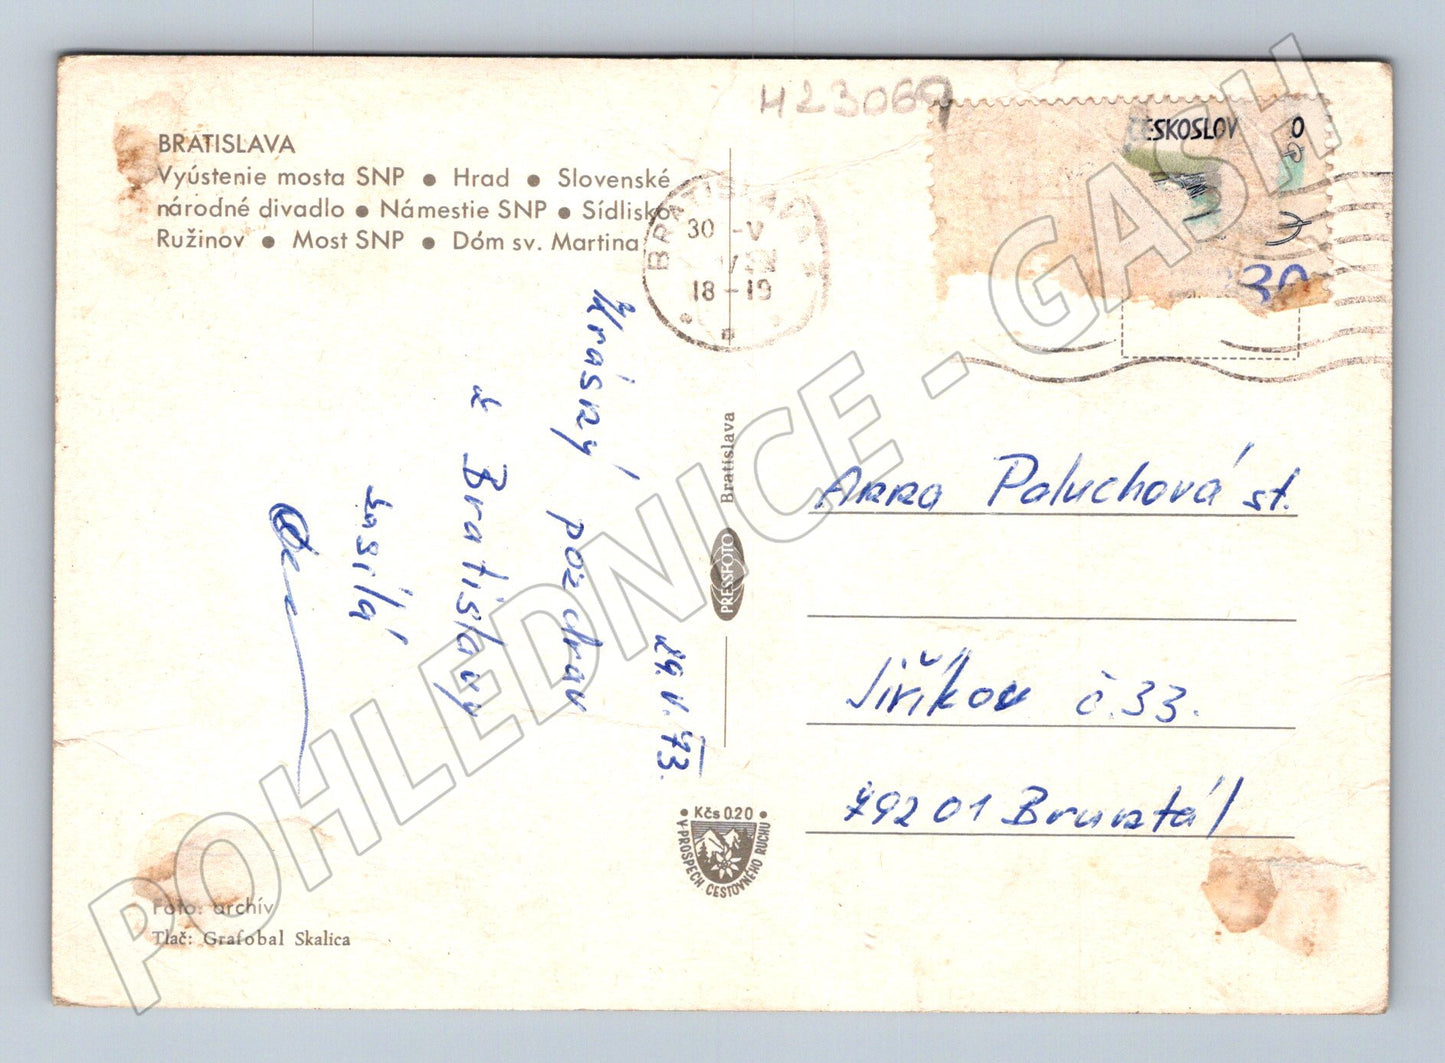 H23069
BRATISLAVA
Vyústenie mosta SNP • Hrad • Slovenské
národné divadlo • Námestie SNP • Sídlisko
Ružinov • Most SNP • Dóm sv. Martina
BRATISLAVA
30 -V
18 -19
ČESKOSLOV O
30
Krásný pozdrav
z Bratislavy
zasílá
29.V.73.
Bratislava
PRESSFOTO
Anna Paluchová st.
Jiříkov č.33.
79201 Bruntál
Kčs 0.20
V PROSPECH CESTOVNÉHO RUCHU
Foto: archív
Tlač: Grafobal Skalica
POHLEDNICE - GASH